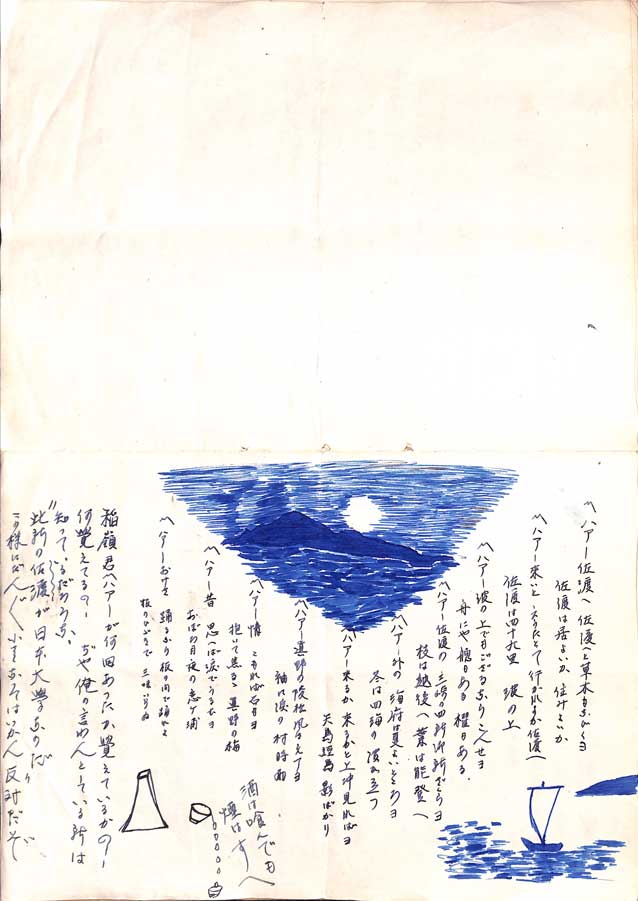 ハアー佐渡へ佐渡へと草木もなびくヨ
佐渡は居よいか住みよいか
ハアー来いと云うたとて行かりょか佐渡へ
佐渡は四十九里波の上
ハアー波の上でもござるなりこんせヨ
舟にや艪もある櫂もある
ハアー佐渡の三崎の四所御所ざくらヨ
枝は越後へ葉は能登へ
ハアー外の海府は夏よいところヨ
冬は四海の浪が立つ
ハアー来るか来るかと上沖見ればヨ
矢島経島影ばかり
ハアー真野の後松風さえてヨ
袖に涙の村時雨
ハアー情こもれば石さヨ
抱いて寒
ハアー昔思へば涙でうるむヨ
おぼろ月夜の恋ヶ浦
ハアーおけさ踊るなり板の間で踊れヨ
板のひびきで三味いらぬ
酒は喰んでも
煙はすへ
稲嶺君ハアーが何回あったか覚えているかのー
何覚えてるのーぢや俺の言めんとしている所は
知っているだろうな、
"北新の佐渡が日本大学なのだ
この様に
反対だぞ